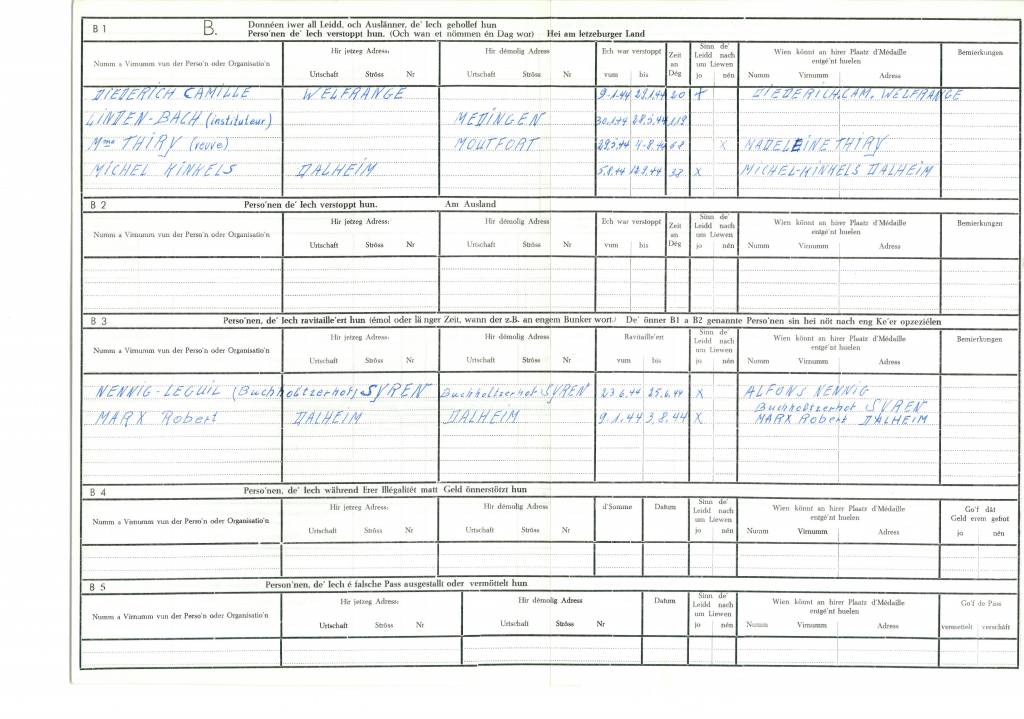 B 1 B. Donnéen iwer all Leidd, och Auslänner, de' Iech gehollef hun
Perso'nen de' Iech verstoppt hun. (Och wan et nömmen én Dag wor) Hei am letzeburger Land
Numm a Virnumm vun der Perso'n oder Organisatio'n
Hir jetzeg Adress:
Urtschaft Ströss Nr
Hir démolig Adress
Urtschaft Ströss Nr
Ech war verstoppt
vum bis
Zeit
an
Dég
Sinn de'
Leidd nach
um Liewen
jo nén
Wien könnt an hirer Plaatz d'Médaille
entgé'nt huelen
Numm Virnumm Adress
Bemierkungen
DIEDERICH CAMILLE WELFRANGE 9-1.44 29.1.44 20 x DIEDERICH.CAM. WELFRANGE
LINDEN-BACH (instituteur) MEDINGEN 30.1.44 28.5.44 119
Mme THIRY (veuve) MOUTFORT 29.5.44 4-8.44 68 x NADELEINE THIRY
MICHEL KINKELS DALHEIM 5.8.44 12.9.44 38 x MICHEL-KINKELS DALHEIM
B 2 Perso'nen de' Iech verstoppt hun. Am Ausland
Numm a Virnumm vun der Perso'n oder Organisatio'n
Hir jetzeg Adress:
Urtschaft Ströss Nr
Hir démolig Adress
Urtschaft Ströss Nr
Ech war verstoppt
vum bis
Zeit
an
Dég
Sinn de'
Leidd nach
um Liewen
jo nén
Wien könnt an hirer Plaatz d'Médaille
entgé'nt huelen
Numm Virnumm Adress
Bemierkungen
B 3 Perso'nen, de' Iech ravitaille'ert hun (émol oder lä nger Zeit, wann der z.B. an engem Bunker wort.) De' önner B1 a B2 genannte Perso'nen sin hei nöt nach eng Ke'er opzeziélen
Numm a Virnumm vun der Perso'n oder Organisatio'n
Hir jetzeg Adress:
Urtschaft Ströss Nr
Hir démolig Adress
Urtschaft Ströss Nr
Ravitaille'ert
vum bis
Sinn de'
Leidd nach
um Liewen
jo nén
Wien könnt an hirer Plaatz d'Médaille
entgé'nt huelen
Numm Virnumm Adress
Bemierkungen
NENNIG-LEGUIL (Buchholtzerhof) SYREN Buchholtzerhof SYREN 23.6.44 25.6.44 x ALFONS NENNIG
Buchholtzerhof SYREN
MARX Robert DALHEIM DALHEIM 9.1.44 3.8.44 x MARX Robert DALHEIM
B 4 Perso'nen, de' Iech während Erer Illégalitét matt Geld önnerstötzt hun
Numm a Virnumm vun der Perso'n oder Organisatio'n
Hir jetzeg Adress:
Urtschaft Ströss Nr
Hir démolig Adress
Urtschaft Ströss Nr
d'Somme Datum
Sinn de'
Leidd nach
um Liewen
jo nén
Wien könnt an hirer Plaatz d'Médaille
entgé'nt huelen
Numm Virnumm Adress
Go'f dât
Geld erem gefrot
jo nén
B 5 Person'nen, de' Iech é falsche Pass ausgestallt oder vermöttelt hun
Numm a Virnumm vun der Perso'n oder Organisatio'n
Hir jetzeg Adress:
Urtschaft Ströss Nr
Hir démolig Adress
Urtschaft Ströss Nr
Datum
Sinn de'
Leidd nach
um Liewen
jo nén
Wien könnt an hirer Plaatz d'Médaille
entgé'nt huelen
Numm Virnumm Adress
Go'f de Pass
vermettelt verschâft